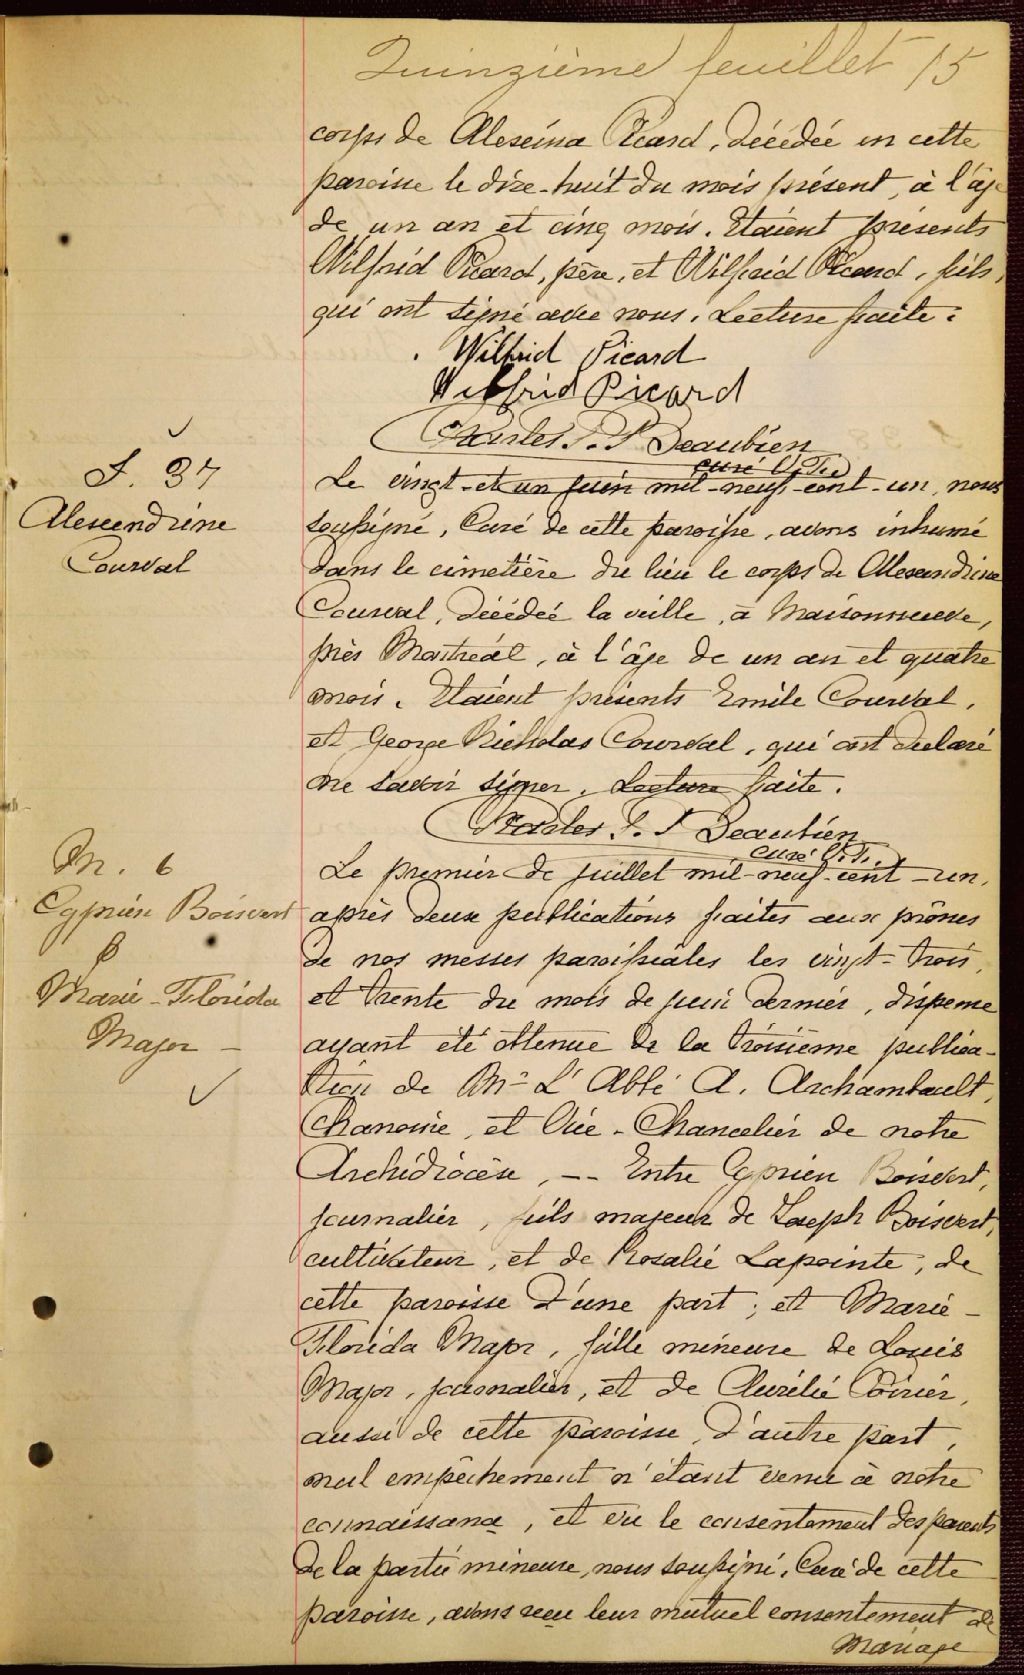 Quinzième feuillet 15
corps de Alexina Picard, décédée en cette
paroisse le dix-huit du mois présent, à l'âge
de un an et cinq mois. Etaient présents
Wilfrid Picard, père, et Wilfrid Picard, fils,
qui ont signé avec nous. Lecture faite.
Wilfrid Picard
Wilfrid Picard
Charles P. Beaubien
curé
S. 37
Alexendrine
Courval
Le vingt-et un juin mil-neuf-cent-un, nous
soussigné, Curé de cette paroisse, avons inhumé
dans le cimetière du lieu le corps de Alexendrine
Courval, décédée la veille, à Maisonneuve,
près Montréal, à l'âge de un an et quatre
mois. Etaient présents Emile Courval,
et George Nicholas Courval, qui ont déclaré
ne savoir signer. Lecture faite.
Charles P. Beaubien
curé
M. 6
Cyprien Boisvert
&
Marie-Florida
Major -
Le premier de juillet mil-neuf-cent-un,
après deux publications faites aux prônes
de nos messes paroissiales les vingt-trois,
et trente du mois de juin dernier, dispense
ayant été obtenue de la troisième publica-
tion de Mr L'Abbé A. Archambault,
Chanoine, et Vice-Chancelier de notre
Archidiocèse, -- Entre Cyprien Boisvert,
journalier, fils majeur de Joseph Boisvert,
cultivateur, et de Rosalie Lapointe, de
cette paroisse d'une part; et Marie-
Florida Major, fille mineure de Louis
Major, journalier, et de Aurélie Poirier,
aussi de cette paroisse, d'autre part,
nul empêchement n'étant venu à notre
connaissance, et vu le consentement des parents
de la partie mineure, nous soussigné, Curé de cette
paroisse, avons reçu leur mutuel consentement de
Mariage